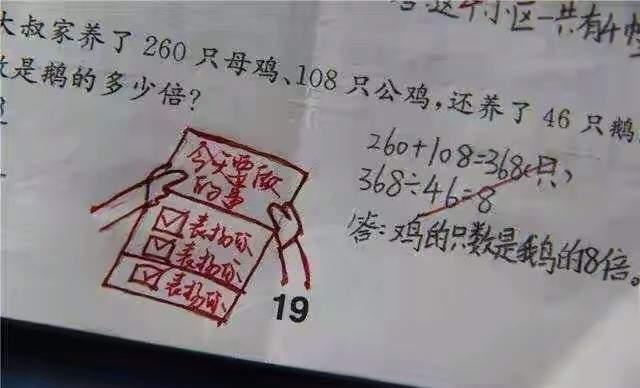 这个小区一共有4
大叔家养了 260 只母鸡、108 只公鸡，还养了 46 只鹅
是鹅的多少倍？
260+108=368(只)
368÷46=8
答：鸡的只数是鹅的8倍。
今天要做
的事
表扬你
表扬你
表扬你
19